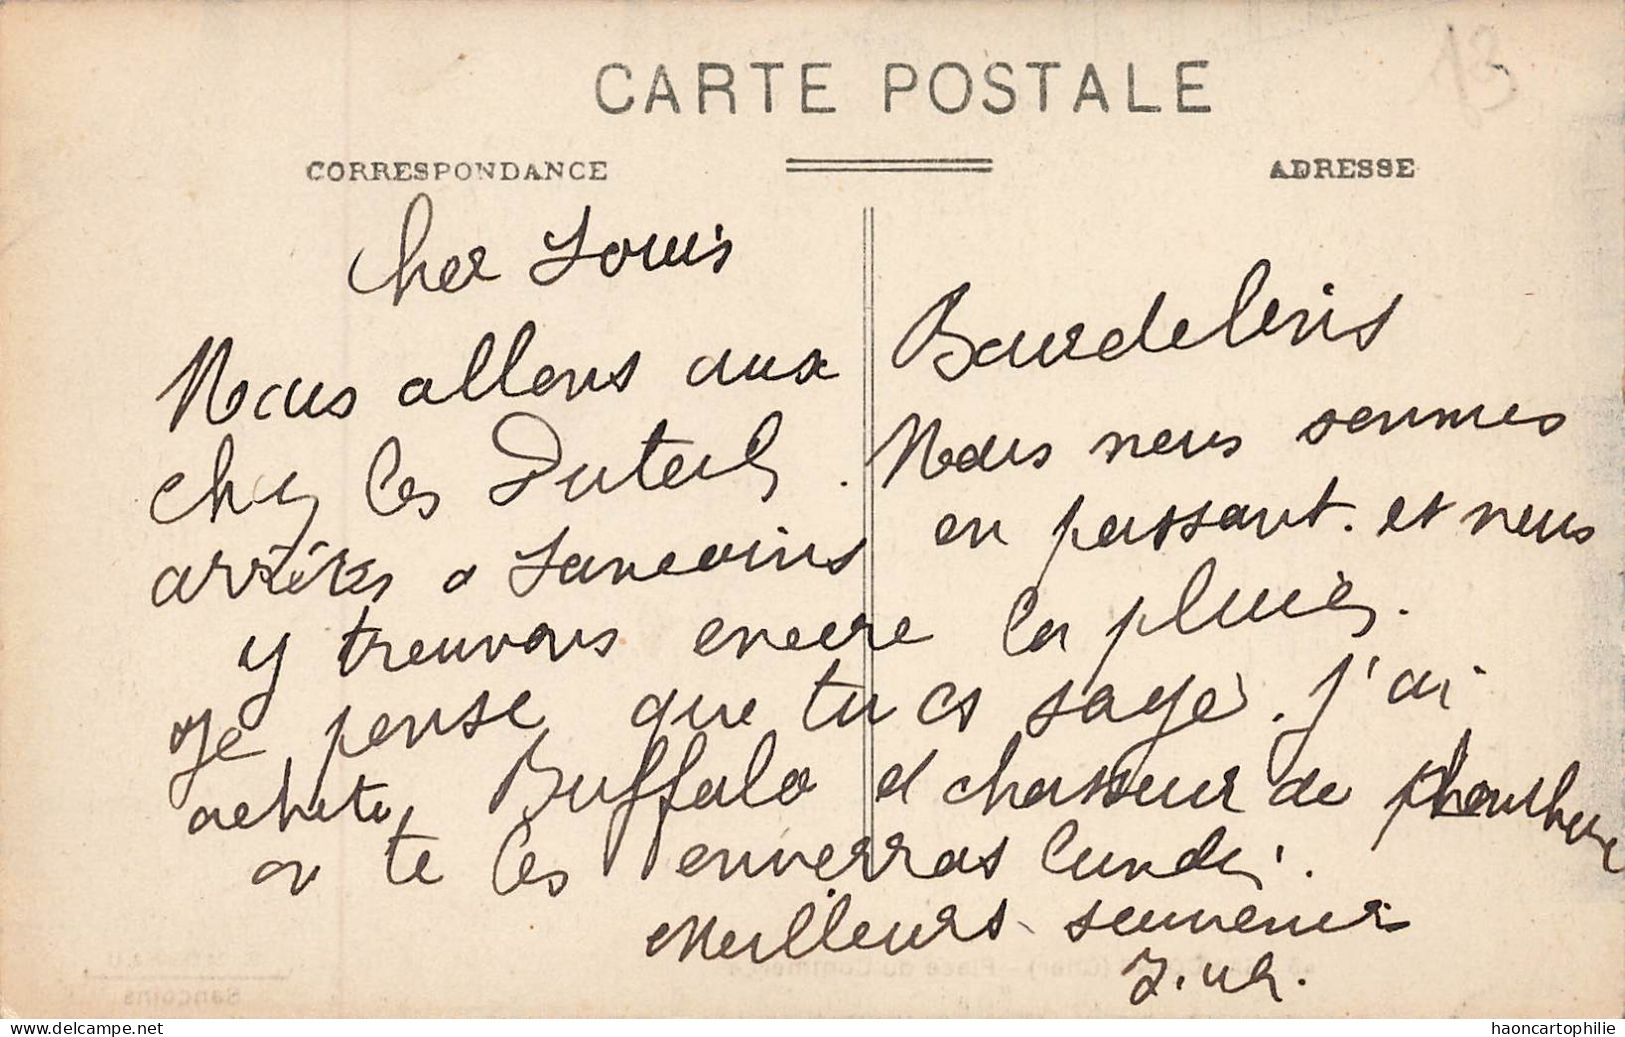 13
CARTE POSTALE
CORRESPONDANCE
ADRESSE
Cher Louis
Nous allons aux Bourdelins
chez les Duteil. Nous nous sommes
arrêtés a Sancoins en passant. et nous
y trouvons encore la pluie.
Je pense que tu es sage. J'ai
acheté Buffalo et chasseur de
on te les enverras lundi.
Meilleurs souvenir
(Cher) - Place du Commerce
Sancoins
delcampe.net
haoncartophilie